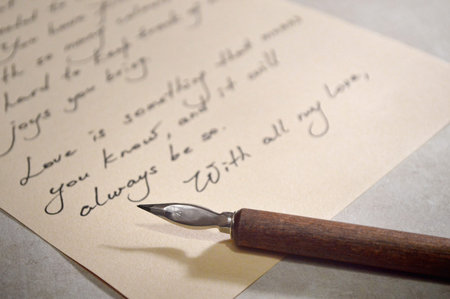 you have
th so many
hard to keep track of
joys you bring.
Love is something that
you know, and it will
always be so.
With all my love,